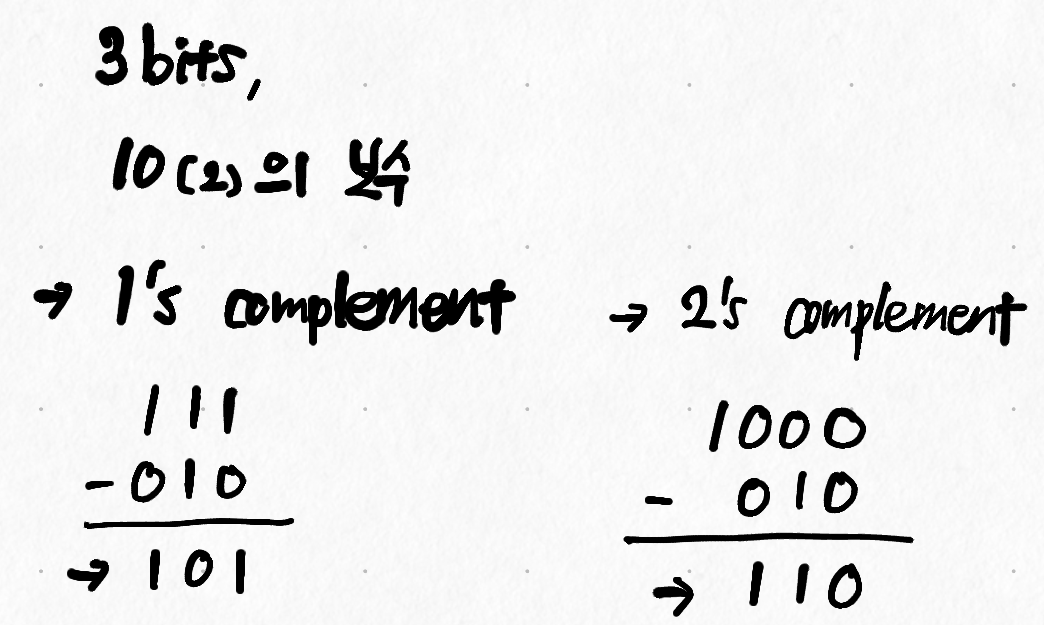 3 bits,
10(2)의 보수
→ 1's complement
111
-010
→ 101
→ 2's complement
1000
- 010
→ 110